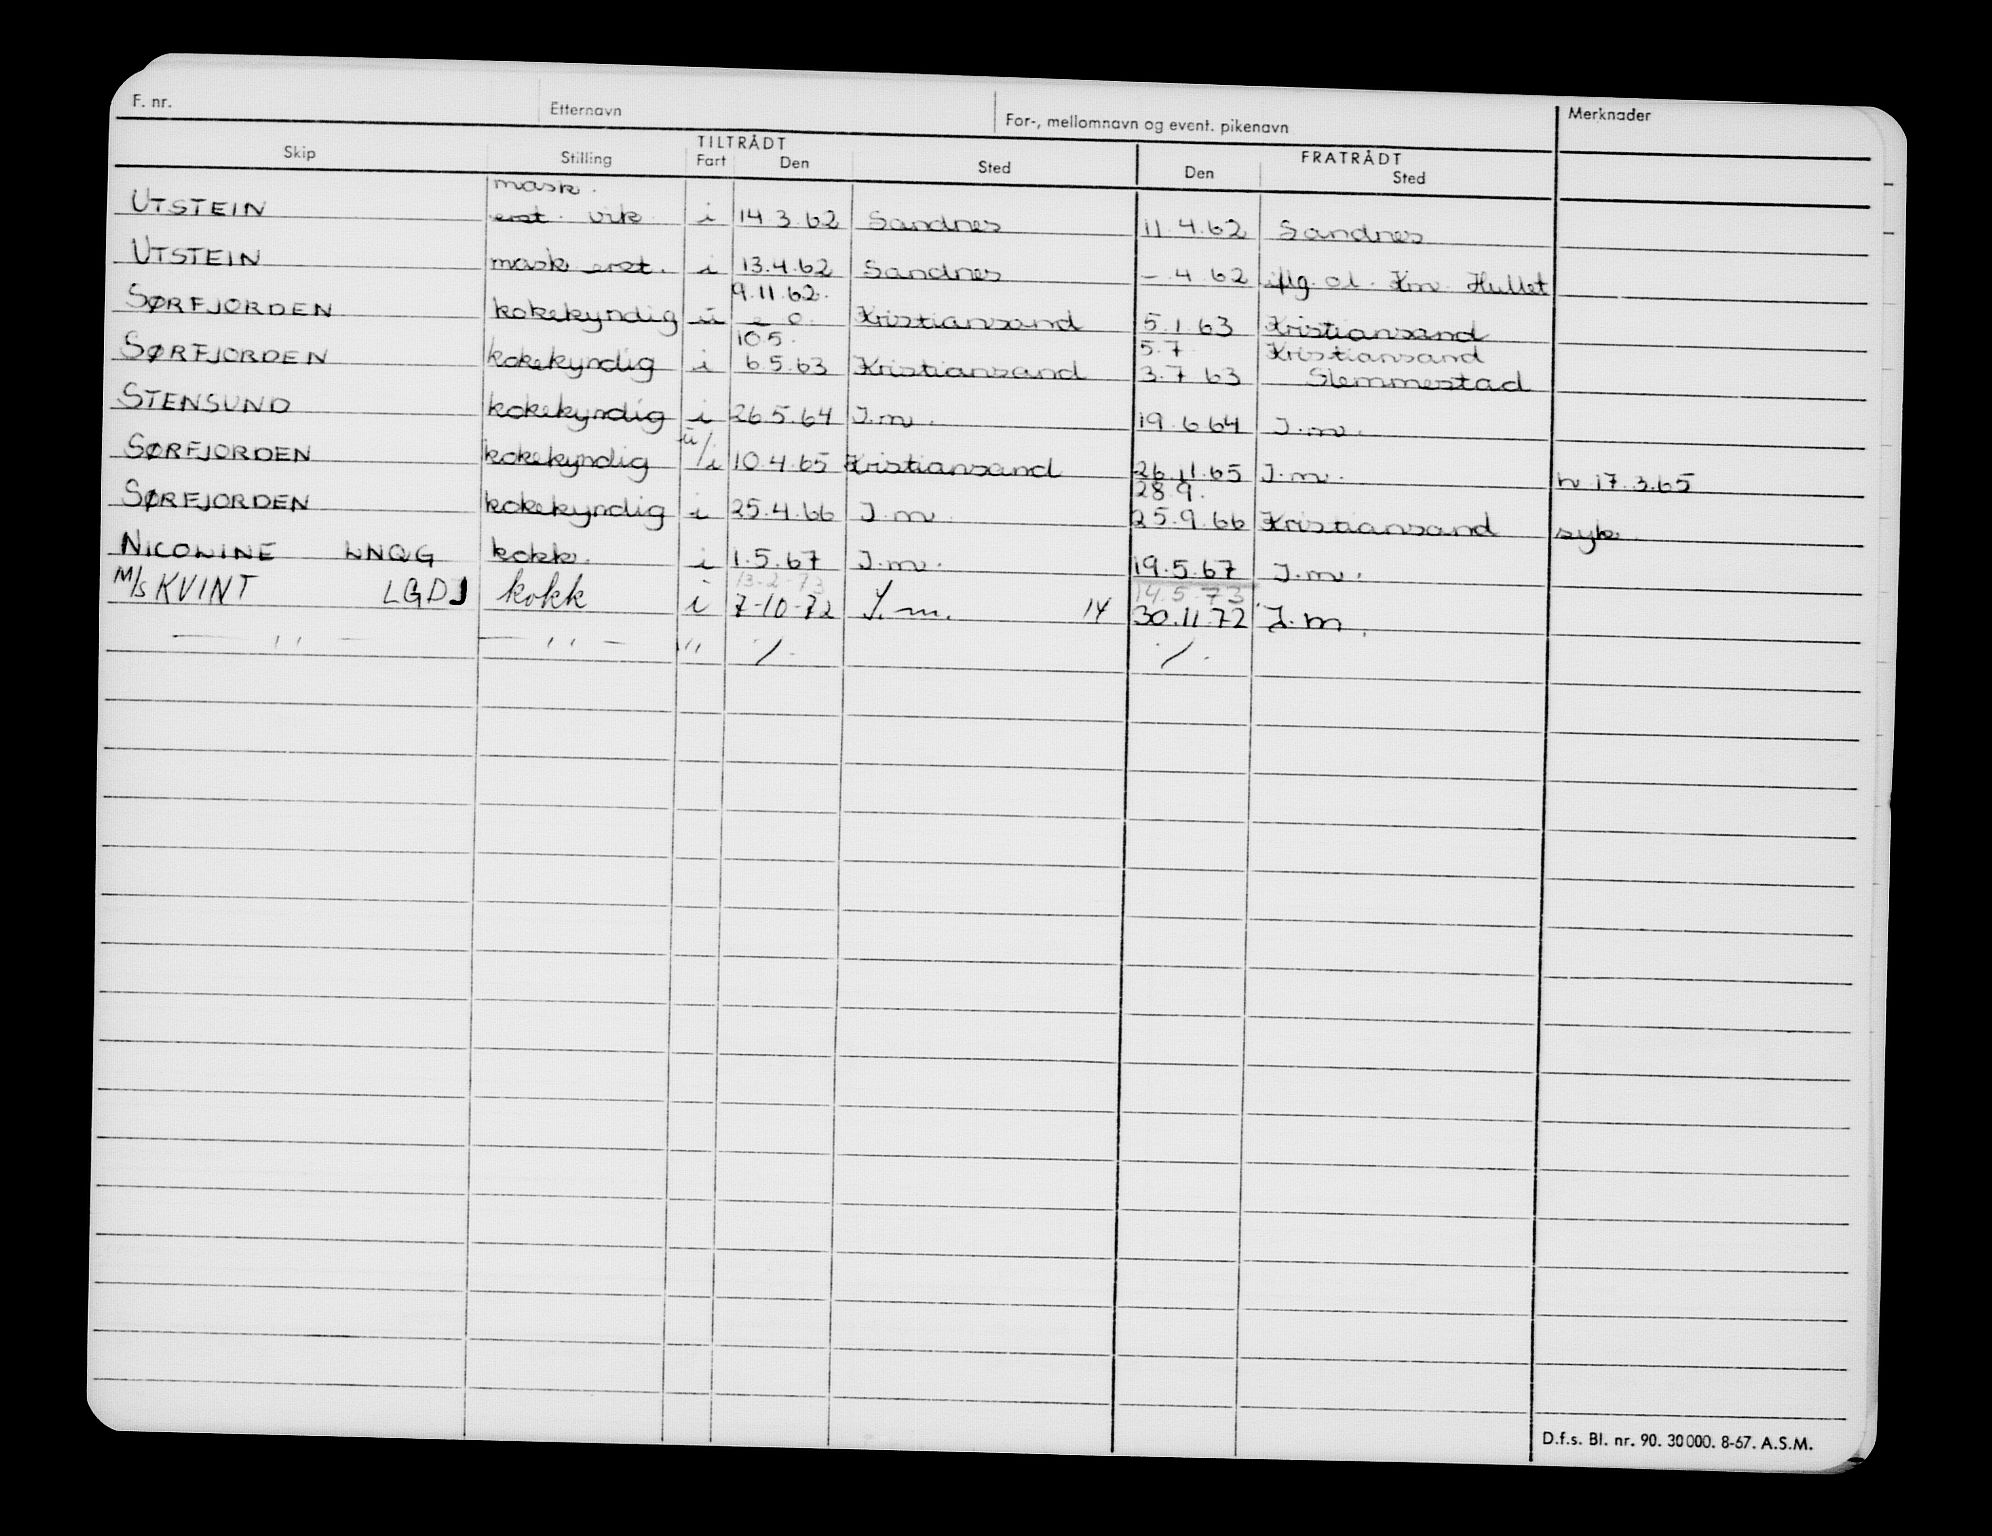 F. nr. Etternavn For-, mellomnavn og event. pikenavn Merknader
TILTRÅDT FRATRÅDT
Skip Stilling Fart Den Sted Den Sted
mask.
UTSTEIN erst. vik i 14.3.62 Sandnes 11.4.62 Sandnes
UTSTEIN mask erst. i 13.4.62 Sandnes - 4 62 iflg. ol. Km. Hullet
9.11.62.
SØRFJORDEN kokekyndig u Kristiansand 5.1.63 Kristiansand
10.5. 5.7 Kristiansand
SØRFJORDEN kokekyndig i 6.5.63 Kristiansand 3.7 63 Slemmestad
STENSUND kokekyndig i 26.5.64 J.m. 19.6 64 J.m.
SØRFJORDEN kokekyndig u/i 10.4.65 Kristiansand 26.11.65 J.m. h 17.3.65
28.9.
SØRFJORDEN kokekyndig i 25.4.66 J.m. 25.9.66 Kristiansand syk
NICOLINE LNQG kokk. i 1.5.67 J.m. 19.5.67 J.m.
13-2-73 14.5.73
M/s KVINT LGDJ kokk i 7-10-72 J.m. 14 30.11.72 J.m.
— " — — " — " /. /.
D.f.s. Bl. nr. 90. 30 000. 8-67. A.S.M.